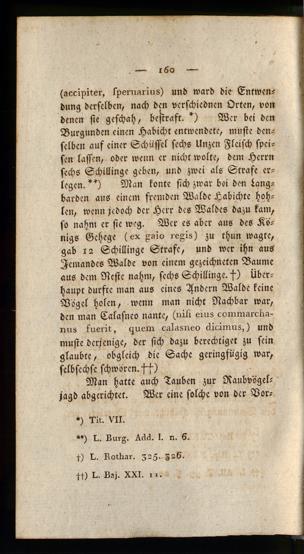 — 160 —
(accipiter, ſperuarius) und ward die Entwen⸗
dung derſelben, nach den verſchiednen Orten, von
denen ſie geſchah, beſtraft. *) Wer bei den
Burgunden einen Habicht entwendete, muſte den⸗
ſelben auf einer Schüſſel ſechs Unzen Fleiſch ſpei⸗
ſen laſſen, oder wenn er nicht wolte, dem Herrn
ſechs Schillinge geben, und zwei als Strafe er⸗
legen. **) Man konte ſich zwar bei den Lang⸗
barden aus einem fremden Walde Habichte hoh⸗
len, wenn jedoch der Herr des Waldes dazu kam,
ſo nahm er ſie weg. Wer es aber aus des Kö⸗
nigs Gehege (ex gaio regis) zu thun wagte,
gab 12 Schillinge Strafe, und wer ihn aus
Jemandes Walde von einem gezeichneten Baume
aus dem Neſte nahm, ſechs Schillinge. †) Über⸗
haupt durfte man aus eines Andern Walde keine
Vögel holen, wenn man nicht Nachbar war,
den man Calaſneo nante, (niſi eius commarcha-
nus fuerit, quem calasneo dicimus,) und
muste derjenige, der ſich dazu berechtiget zu ſein
glaubte, obgleich die Sache geringfügig war,
ſelbſechſe ſchwören. ††)
Man hatte auch Tauben zur Raubvögel⸗
jagd abgerichtet. Wer eine ſolche von der Vor⸗
*) Tit. VII.
**) L. Burg. Add. I. n. 6.
†) L. Rothar. 325. 326.
††) L. Baj. XXI. 11.